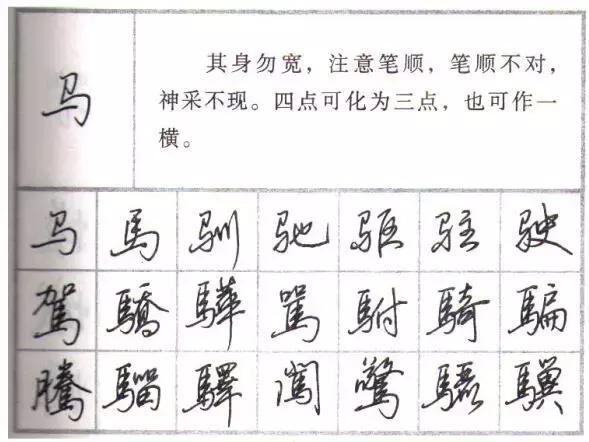 马
其身勿宽，注意笔顺，笔顺不对，
神采不现。四点可化为三点，也可作一
横。
马 馬 驯 驰 驱 驻 驶
駕 驕 驊 駡 駙 騎 騙
騰 騮 驛 闖 驚 驥